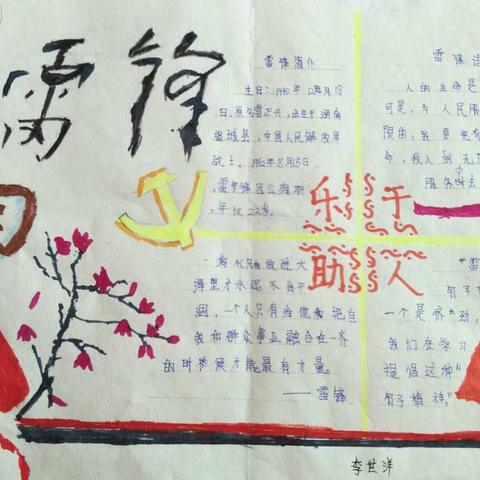 雷锋
雷锋简介
生日：1940年12月18
日，原名雷正兴，出生于湖南
望城县，中国人民解放军
战士。1962年8月15日
，雷锋因公殉职
，年仅22岁。
乐于
助人
一滴水只有放进大
海里才永远不会干
涸，一个人只有当他把自
我和群众事业融合在一齐
的时候才能最有力量。
——雷锋
雷锋
人的生命是
可是，为人民服
限的，我要把有
命，投入到无
服务中去
"雷
钉子
一个是挤劲，
我们在学习
提倡这种"
钉子精神。"
李世洋